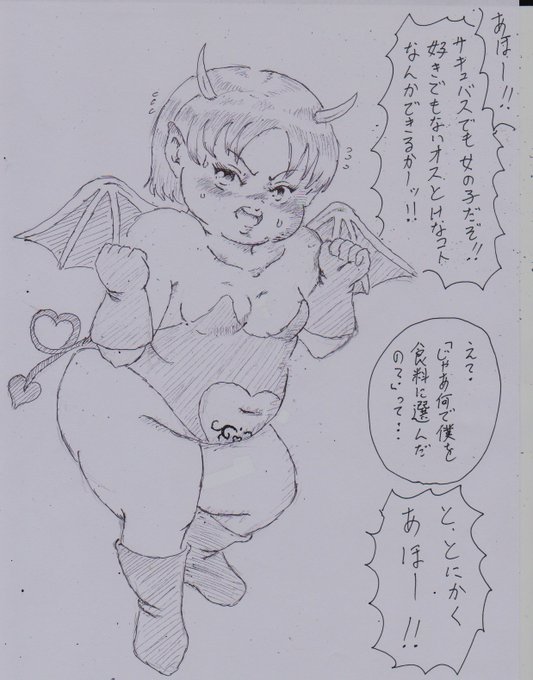 あほー!!
サキュバスでも女の子だぞ!!
好きでもないオスとHなコト
なんかできるかーッ!!
えて・
「じゃあ何で僕を
食料に選んだ
の?」って・・
と、とにかく
あほー!!